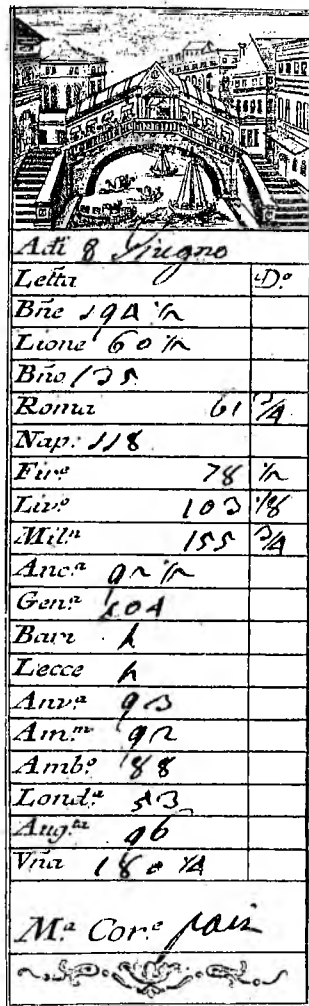 Adi 8 Giugno
Letta D.º
Bñe 194 ½
Lione 60 ½
Bño 135
Roma 61 ¾
Nap: 118
Fir.e 78 ½
Liv.o 103 ⅛
Mil.n 155 ¾
Anc.a 92 ½
Gen.a 104
Bari
Lecce
Anv.a 93
Am.m 92
Amb.o 88
Lond.a 53
Aug.ta 96
Vña 180 ¼
M.a Cor.e